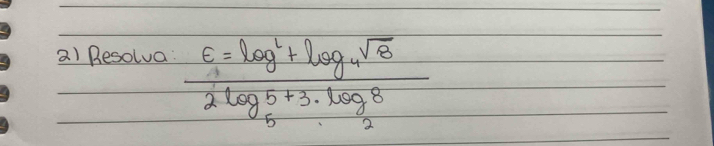 2) Resolva: E = log¹ + log₄ √8
2 log 5 + 3 . log 8
5 2